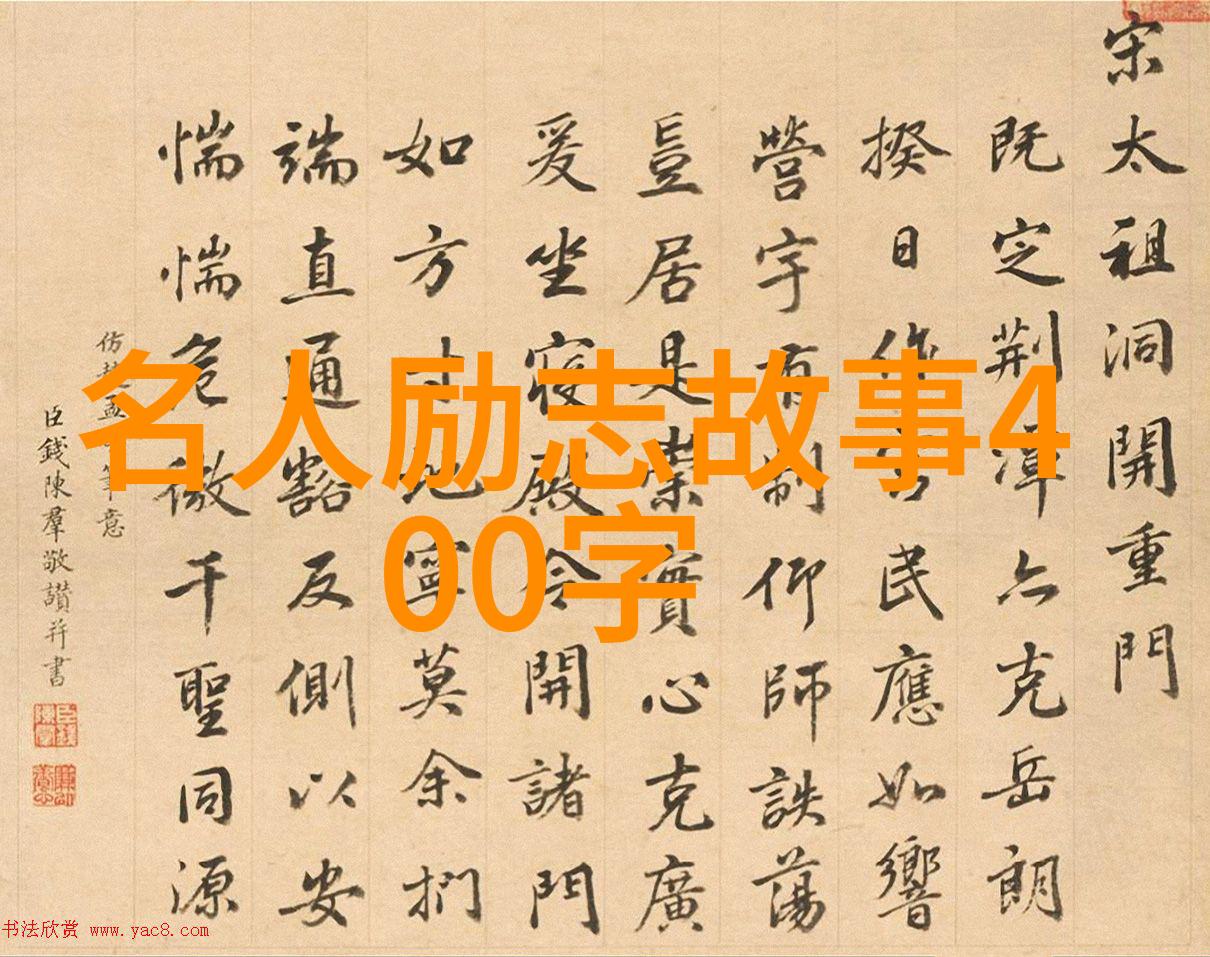 宋太祖洞開重門
既定荊漳亦克岳朗
揆日作民應如響
營宇有制仰師詄蕩
豈居是崇實心克廣
爰坐寢殿令開諸門
如方寸地寧莫余捫
端直通豁反側以安
惴惴危微千聖同源
仿趙孟筆意
臣錢陳羣敬讚并書
名人励志故事4
00字
书法欣赏 www.yac8.com